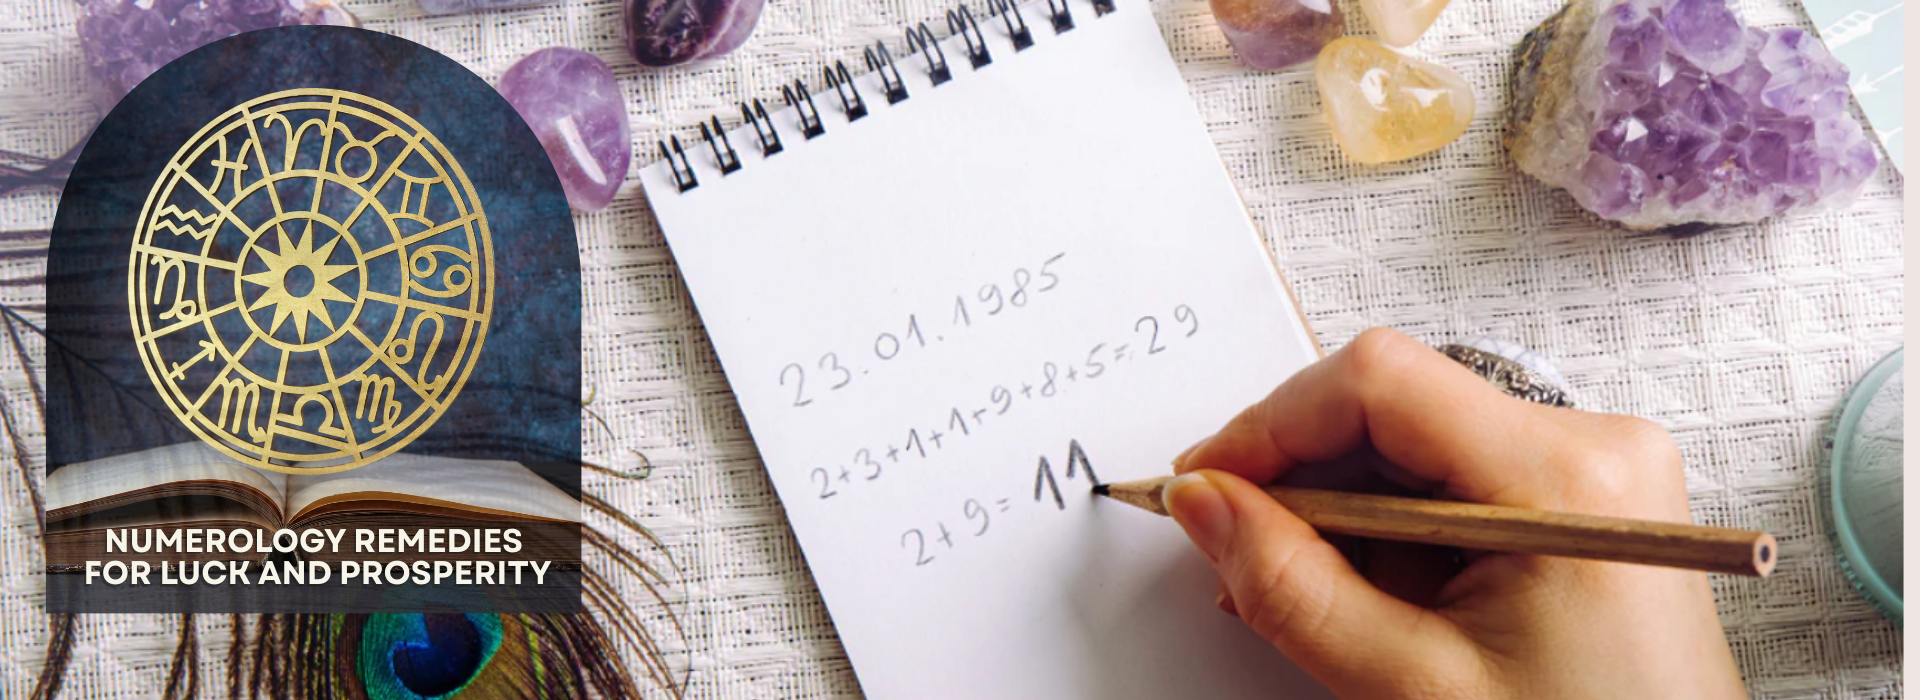 NUMEROLOGY REMEDIES
FOR LUCK AND PROSPERITY
23.01.1985
2+3+1+1+9+8+5=29
2+9=11